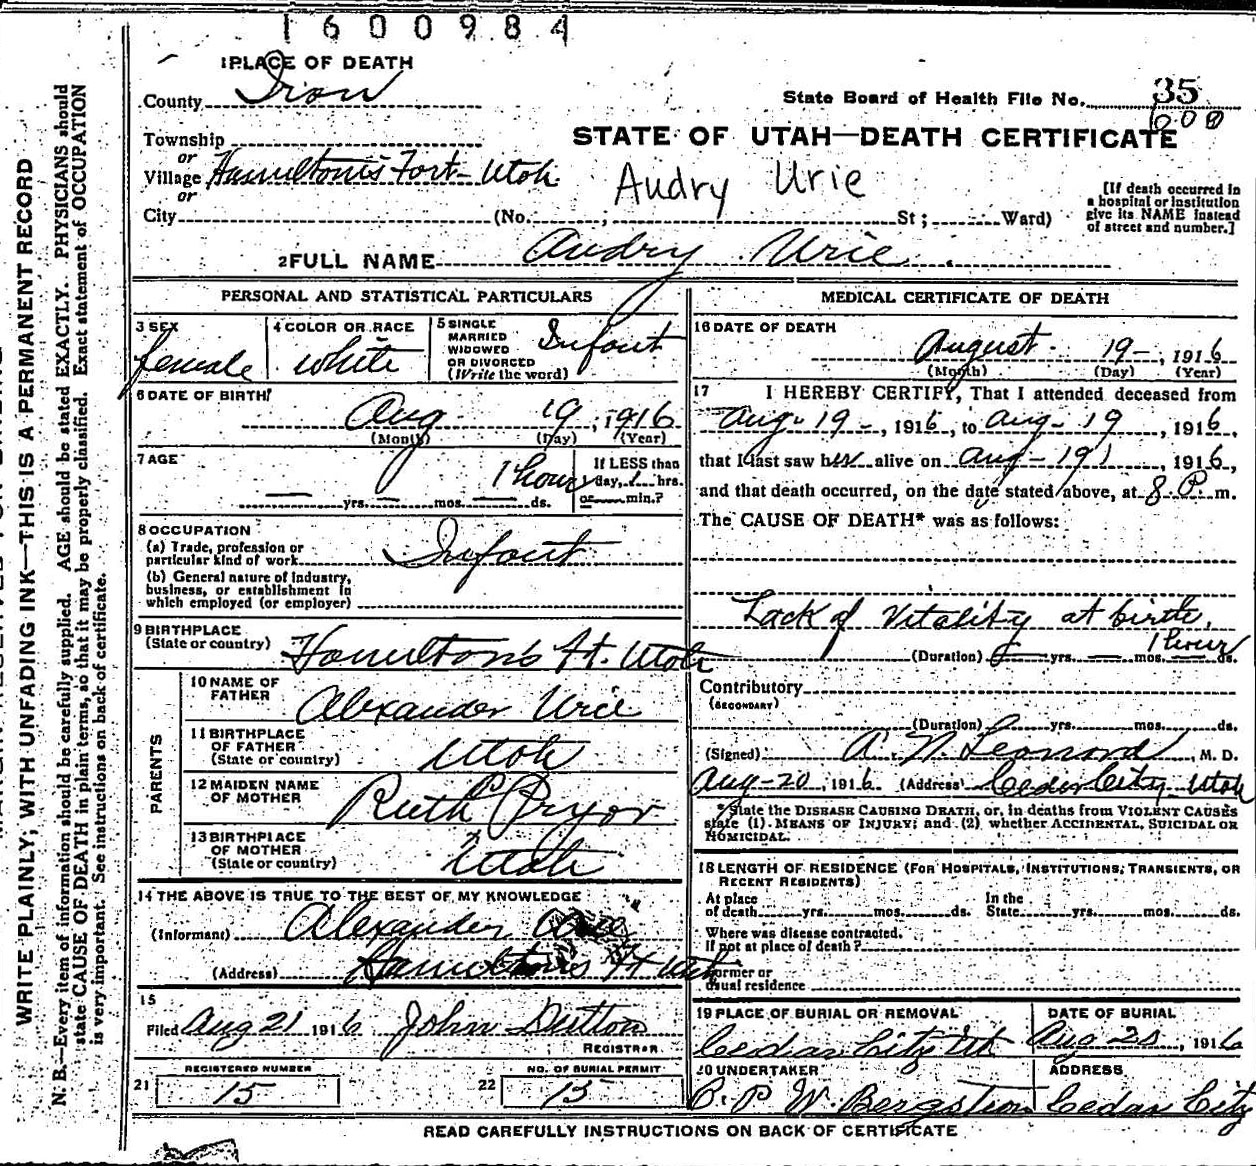 1600984
1 PLACE OF DEATH
County Iron
State Board of Health File No. 35
600
Township
STATE OF UTAH—DEATH CERTIFICATE
or
Village Hamilton's Fort-Utah
Audry Urie
or
City (No. ; St; Ward)
[If death occurred in
a hospital or institution
give its NAME instead
of street and number.]
2 FULL NAME Audry Urie
PERSONAL AND STATISTICAL PARTICULARS
3 SEX
female
4 COLOR OR RACE
white
5 SINGLE
MARRIED
WIDOWED
OR DIVORCED
(Write the word)
Infant
6 DATE OF BIRTH
Aug 19, 1916
(Month) (Day) (Year)
7 AGE
1 hour
yrs. mos. ds.
If LESS than
day, 1 hrs.
or min.?
8 OCCUPATION
(a) Trade, profession or
particular kind of work Infant
(b) General nature of industry,
business, or establishment in
which employed (or employer)
9 BIRTHPLACE
(State or country) Hamilton's Ft. Utah
PARENTS
10 NAME OF
FATHER
Alexander Urie
11 BIRTHPLACE
OF FATHER
(State or country) Utah
12 MAIDEN NAME
OF MOTHER
Ruth Pryor
13 BIRTHPLACE
OF MOTHER
(State or country) Utah
14 THE ABOVE IS TRUE TO THE BEST OF MY KNOWLEDGE
(Informant) Alexander Urie
(Address) Hamilton's Ft Utah
15
Filed Aug 21 1916 John Dutton
REGISTRAR
REGISTERED NUMBER
21 15
NO. OF BURIAL PERMIT
22 15
MEDICAL CERTIFICATE OF DEATH
16 DATE OF DEATH
August 19-, 1916
(Month) (Day) (Year)
17 I HEREBY CERTIFY, That I attended deceased from
Aug-19-, 1916, to Aug-19, 1916,
that I last saw her alive on Aug-19, 1916,
and that death occurred, on the date stated above, at 8 P. m.
The CAUSE OF DEATH* was as follows:
Lack of Vitality at birth,
1 hour
(Duration) yrs. mos. ds.
Contributory
(SECONDARY)
(Duration) yrs. mos. ds.
(Signed) A. N. Leonard, M. D.
Aug-20, 1916 (Address) Cedar City-Utah
*State the DISEASE CAUSING DEATH, or, in deaths from VIOLENT CAUSES
state (1) MEANS OF INJURY; and (2) whether ACCIDENTAL, SUICIDAL OR
HOMICIDAL.
18 LENGTH OF RESIDENCE (FOR HOSPITALS, INSTITUTIONS, TRANSIENTS, OR
RECENT RESIDENTS)
At place
of death yrs. mos. ds.
In the
State yrs. mos. ds.
Where was disease contracted,
if not at place of death?
Former or
usual residence
19 PLACE OF BURIAL OR REMOVAL
Cedar City Ut
DATE OF BURIAL
Aug 20, 1916
20 UNDERTAKER
P. P. W. Bergstrom
ADDRESS
Cedar City
READ CAREFULLY INSTRUCTIONS ON BACK OF CERTIFICATE
WRITE PLAINLY; WITH UNFADING INK—THIS IS A PERMANENT RECORD
N. B.—Every item of information should be carefully supplied. AGE should be stated EXACTLY. PHYSICIANS should
state CAUSE OF DEATH in plain terms, so that it may be properly classified. Exact statement of OCCUPATION
is very important. See instructions on back of certificate.